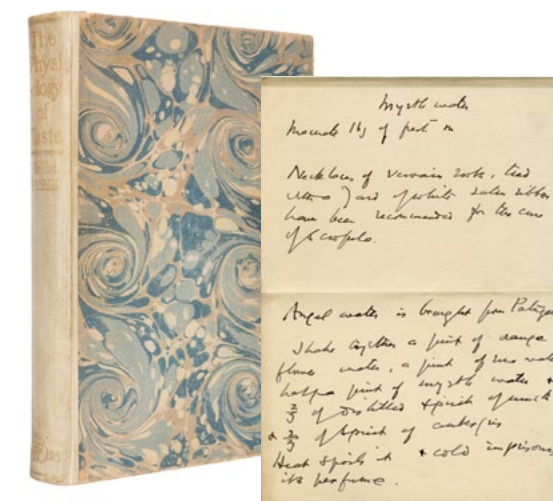 The
Physi
ology
of
Taste
25
Myrtle water
Macerate of in
Necklaces of vervain roots, tied
with a yard of white satin ribbon
have been recommended for the cure
of scrofula.
Angel water is brought from
Shake together a pint of orange
flower water, a pint of rose water
half a pint of myrtle water &
2/3 of distilled spirit of musk
& 2/3 of spirit of ambergris
Heat spoils it & cold imprisons
its perfume.